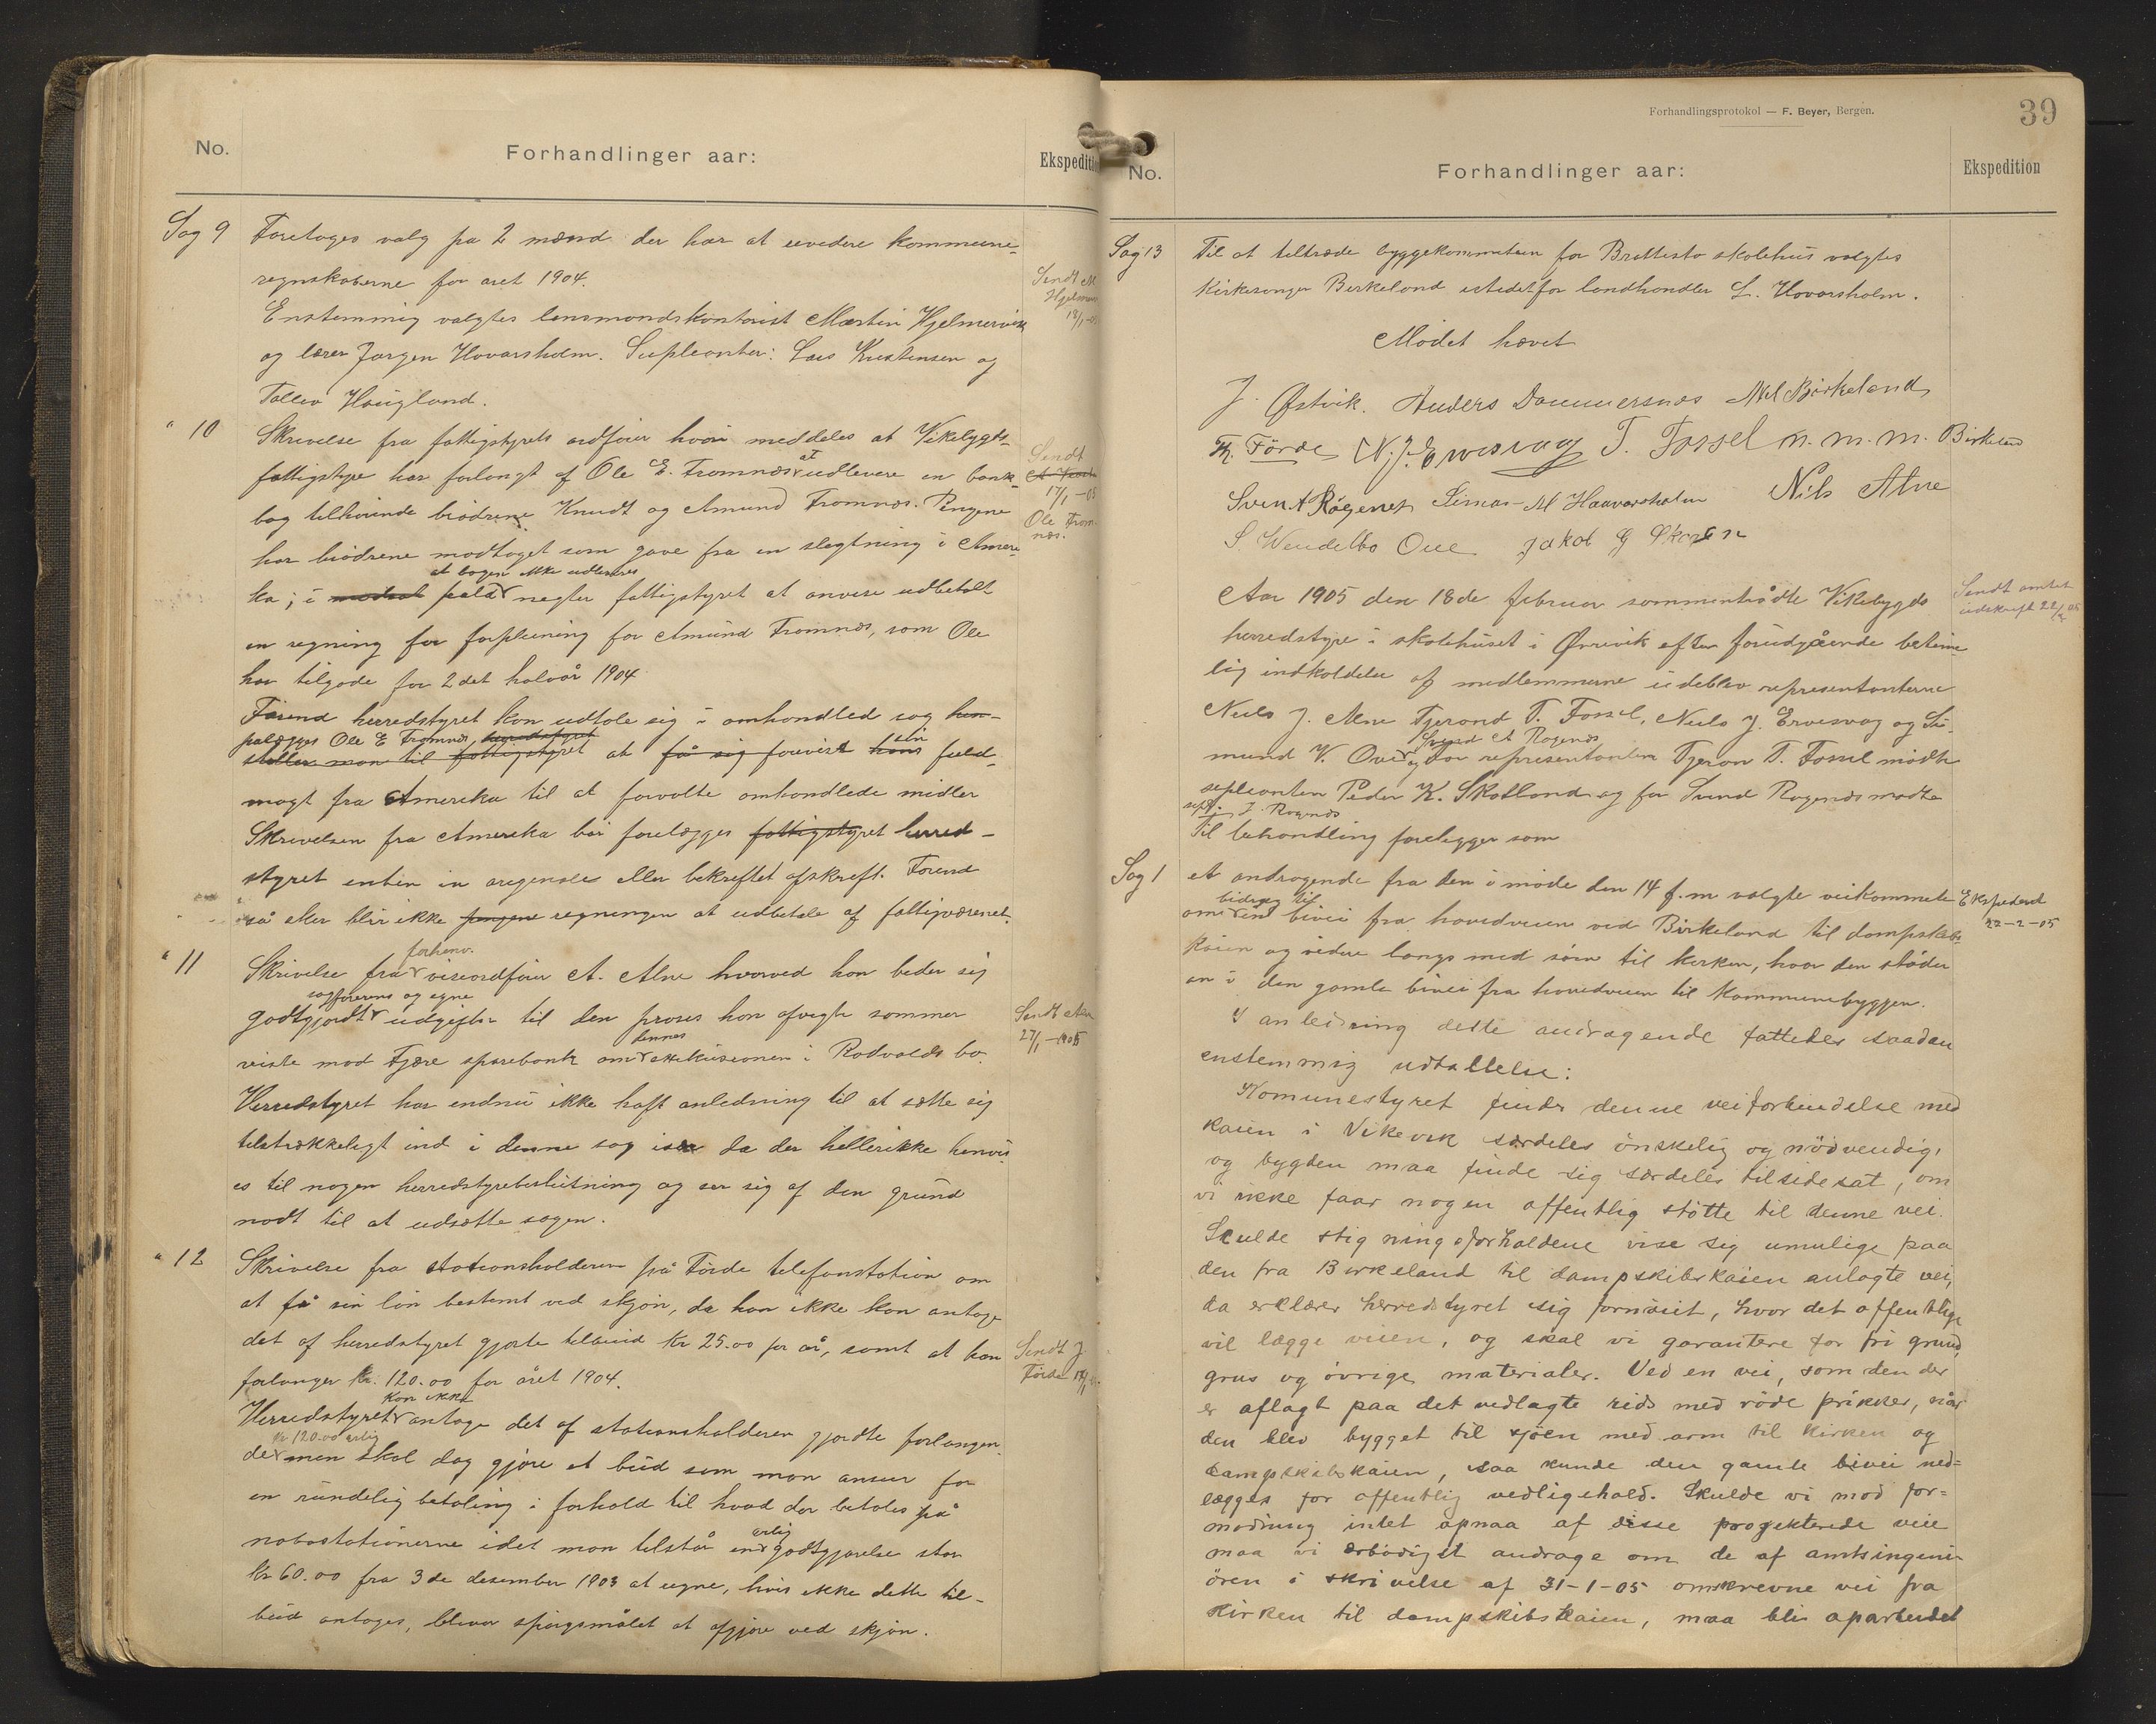 No.
Forhandlinger aar:
Ekspedition
Sag 9
Foretoges valg pa 2 mænd der har at revidere kommune-
regnskaberne for aret 1904.
Enstemmig valgtes lensmandskontorist Martin Hjelmervik
og lærer Jørgen Hovarsholm. Supleanter: Lars Kristensen og
Tollev Haugland.
Sendt M
Hjelmer
18/1-05
" 10
Skrivelse fra fattigstyrets ordfører hvori meddeles at Vikebygds
fattigstyre har forlangt af Ole E. Fromnæs at udlevere en bank-
bog tilhørende brødrene Knudt og Amund Fromnæs. Pengene
har brødrene modtaget som gave fra en slægtning i Ameri-
ka; i modsat fald at bogen ikke udleveres negter fattigstyret at anvise udbetalt
en regning for forpleining for Amund Fromnæs, som Ole
har tilgode for 2det halvår 1904
Sendt
17/1-05
Ole From-
næs.
Førend herredstyret kan udtale sig i omhandled sag hen-
palægges Ole E Fromnæs herredstyret
stiller man til fattigstyret at få sig forevist hans sin fuld-
magt fra Amerika til at forvalte omhandlede midler
Skrivelsen fra Amerika bør forelægges fattigstyret herred-
styret enten in orgenale eller bekreftet afskreft. Forend
så sker blir ikke pengene regningen at udbetale af fattigvæsenet.
" 11
Skrivelse fra forhenv. viseordfører A. Alne hvorved han beder sig
godtgjordt sagførerens og egne udgifter til den proses han afvigte sommer
reiste mod Fjære sparebank om dennes eksekusionen i Rodvalds bo.
Herredstyret har endnu ikke haft anledning til at sætte sig
tilstrækkeligt ind i denne sag især da der hellerikke henvis-
es til nogen herredstyrebeslutning og ser sig af den grund
nødt til at udsætte sagen.
Sendt Alne
27/1-1905
" 12
Skrivelse fra stationsholderen på Førde telefonstation om
at få sin løn bestemt ved skjøn, da han ikke kan antage
det af herredstyret gjorte tilbud Kr 25.00 pr år, samt at han
forlanger Kr. 120.00 for året 1904.
Sendt J
Førde
Herredstyret kan ikke antage det af stationsholderen gjordte forlangen-
de kr 120.00 arlig men skal dog gjøre et bud som man anser for
en rundelig betaling i forhold til hvad der betales på
nabostationerne idet man tilstår en arlig godtgjørelse stor
Kr 60.00 fra 3de desember 1903 at regne, hvis ikke dette til-
bud antages, bliver spørgsmålet at afgjøre ved skjøn.
Forhandlingsprotokol — F. Beyer, Bergen.
39
No.
Forhandlinger aar:
Ekspedition
Sag 13
Til at tiltræde byggekommiteen for Brattestø skolehus valgtes
Kirkesanger Birkeland istedetfor landhandler L. Hovarsholm.
Mødet hævet
J. Østvik. Anders Dommersnæs Mel Birkeland
Th. Førde N. J. Ervesvaag T. Fossel n. m. m. Birkeland
Svend A Røgenes Simon M Haavarsholm Nils Alne
S. Wendelbo Oue Jakob G Økaren
Aar 1905 den 18de februar sammentrådte Vikebygds
herredstyre i skolehuset i Ørrevik efter forudgående betime-
lig indkaldelse af medlemmerne udeblev representanterne
Niels J. Alne Tjerand T. Fossel, Niels J. Ervesvag og Si-
mund V. Oue Svend A Røgenes og for representanten Tjeran T. Fossel mødte
supleanten Peder K. Skotland og for Svend Røgenes mødte
supl. J. Røgenæs
Til behandling foreligger som
Sendt amtet
udskrift 22/2 05
Sag 1
et andragende fra den i møde den 14 f.m valgte veikommete
om bidrag til en bivei fra hovedveien ved Birkeland til dampskibs-
kaien og videre langs med søen til kirken, hvor den støder
an i den gamle bivei fra hovedveien til Kommunebryggen.
Ekspederd
22-2-05
I anledning dette andragende fattedes saadan
enstemmig udtallelse:
Komunestyret finder denne veiforbindelse med
kaien i Vikevik særdeles ønskelig og nødvendig,
og bygden maa finde sig særdeles tilsidesat, om
vi ikke faar nogen offentlig støtte til denne vei.
Skulde stigningsforholdene vise sig umulige paa
den fra Birkeland til dampskibskaien anlagte vei,
da erklærer herredstyret sig fornøiet, hvor det offentlige
vil lægge veien, og skal vi garantere for fri grund,
grus og øvrige materialer. Ved en vei, som den der
er aflagt paa det vedlagte rids med røde prikker, når
den blev bygget til sjøen med arm til kirken og
dampskibskaien, saa kunde den gamle bivei ned=
lægges for offentlig vedligehold. Skulde vi mod for=
modning intet opnaa af disse progekterede veie
maa vi ærbødigst andrage om de af amtsingeni-
øren i skrivelse af 31-1-05 omskrevne vei fra
kirken til dampskibskaien, maa bliv oparbeidet